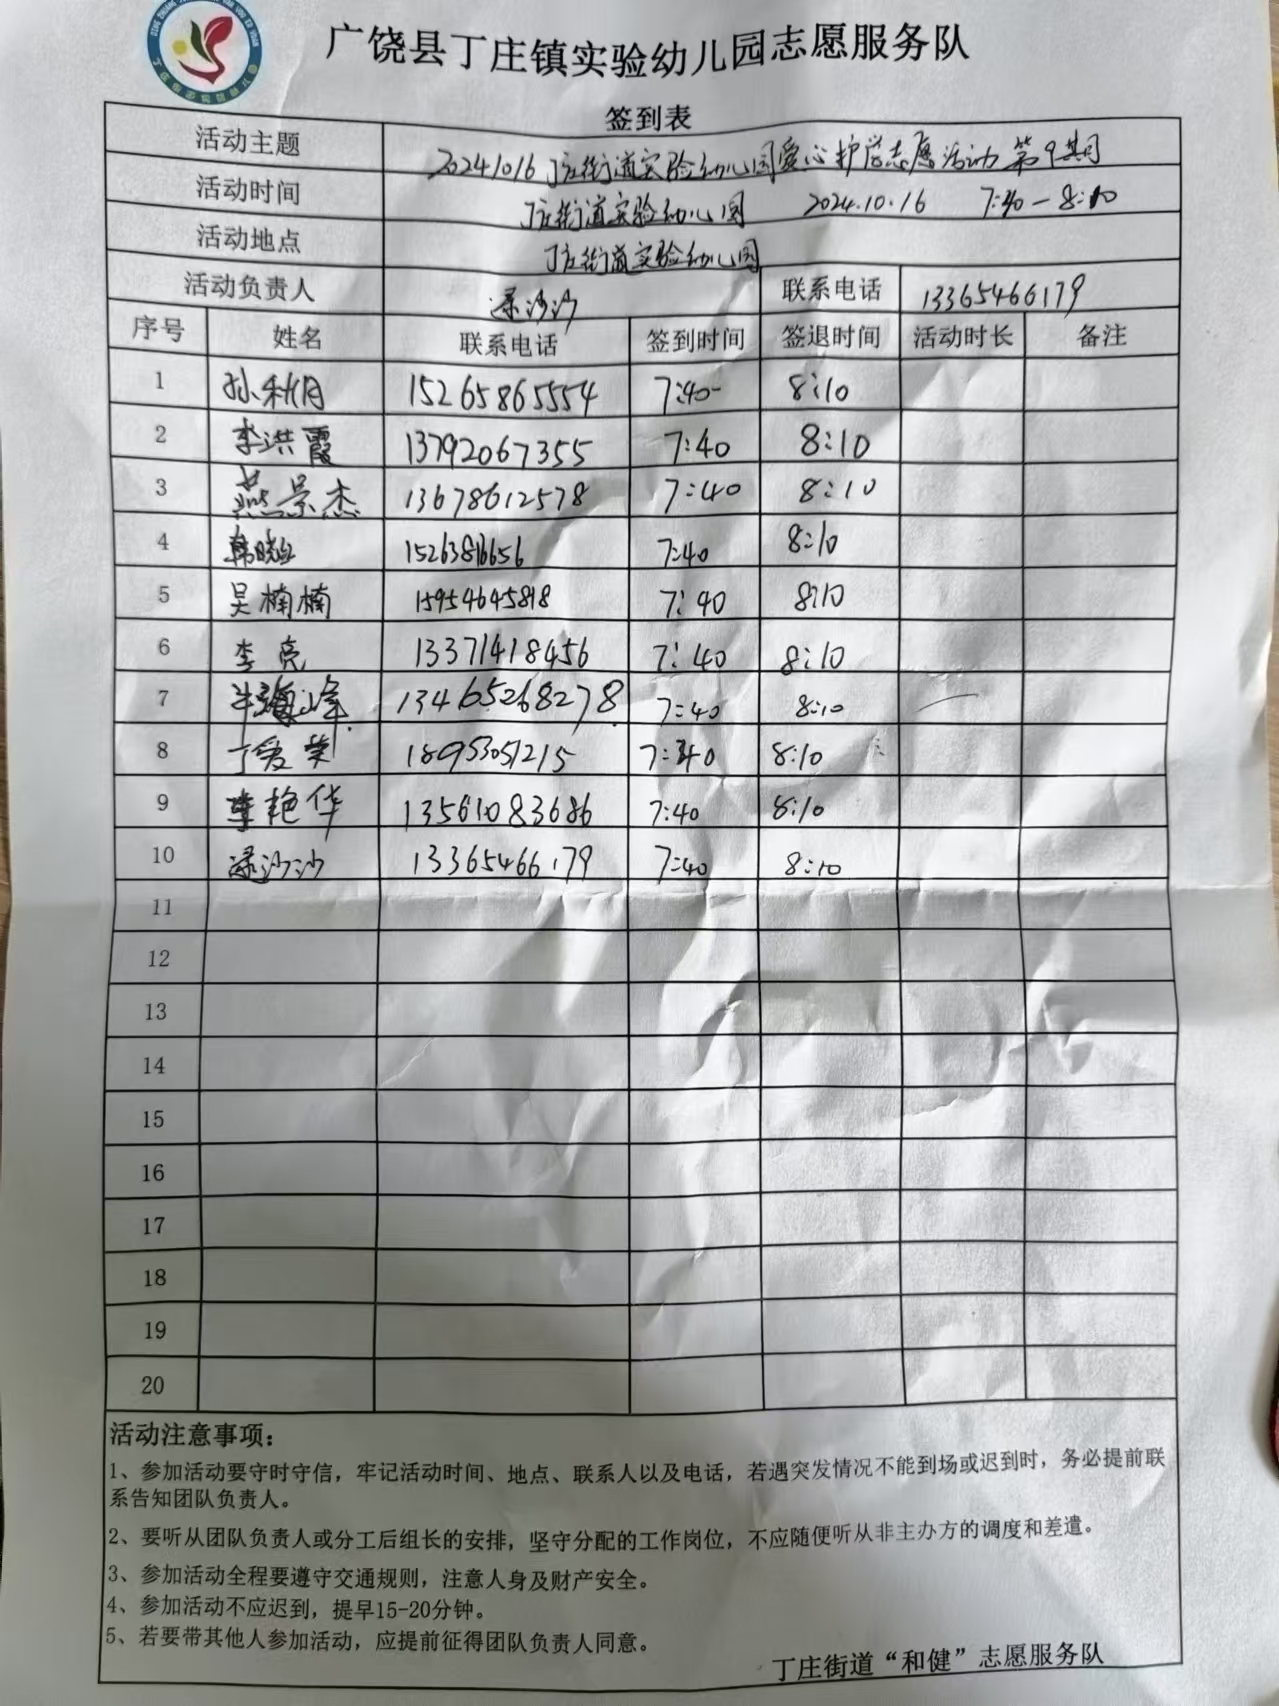 广饶县丁庄镇实验幼儿园志愿服务队
签到表
活动主题 20241016丁庄街道实验幼儿园爱心护学志愿活动第9期
活动时间 丁庄街道实验幼儿园 2024.10.16 7:40-8:10
活动地点 丁庄街道实验幼儿园
活动负责人 沙沙 联系电话 13365466179
序号 姓名 联系电话 签到时间 签退时间 活动时长 备注
1 孙秋月 15265865554 7:40 8:10
2 李洪霞 13792067355 7:40 8:10
3 燕景杰 13678612578 7:40 8:10
4 韩晓 7:40 8:10
5 吴楠楠 15954645818 7:40 8:10
6 李亮 13371418456 7:40 8:10
7 牛海峰 13465268278 7:40 8:10
8 丁爱荣 18953051215 7:40 8:10
9 李艳华 13561083686 7:40 8:10
10 沙沙 13365466179 7:40 8:10
11
12
13
14
15
16
17
18
19
20
活动注意事项：
1、参加活动要守时守信，牢记活动时间、地点、联系人以及电话，若遇突发情况不能到场或迟到时，务必提前联
系告知团队负责人。
2、要听从团队负责人或分工后组长的安排，坚守分配的工作岗位，不应随便听从非主办方的调度和差遣。
3、参加活动全程要遵守交通规则，注意人身及财产安全。
4、参加活动不应迟到，提早15-20分钟。
5、若要带其他人参加活动，应提前征得团队负责人同意。
丁庄街道“和健”志愿服务队